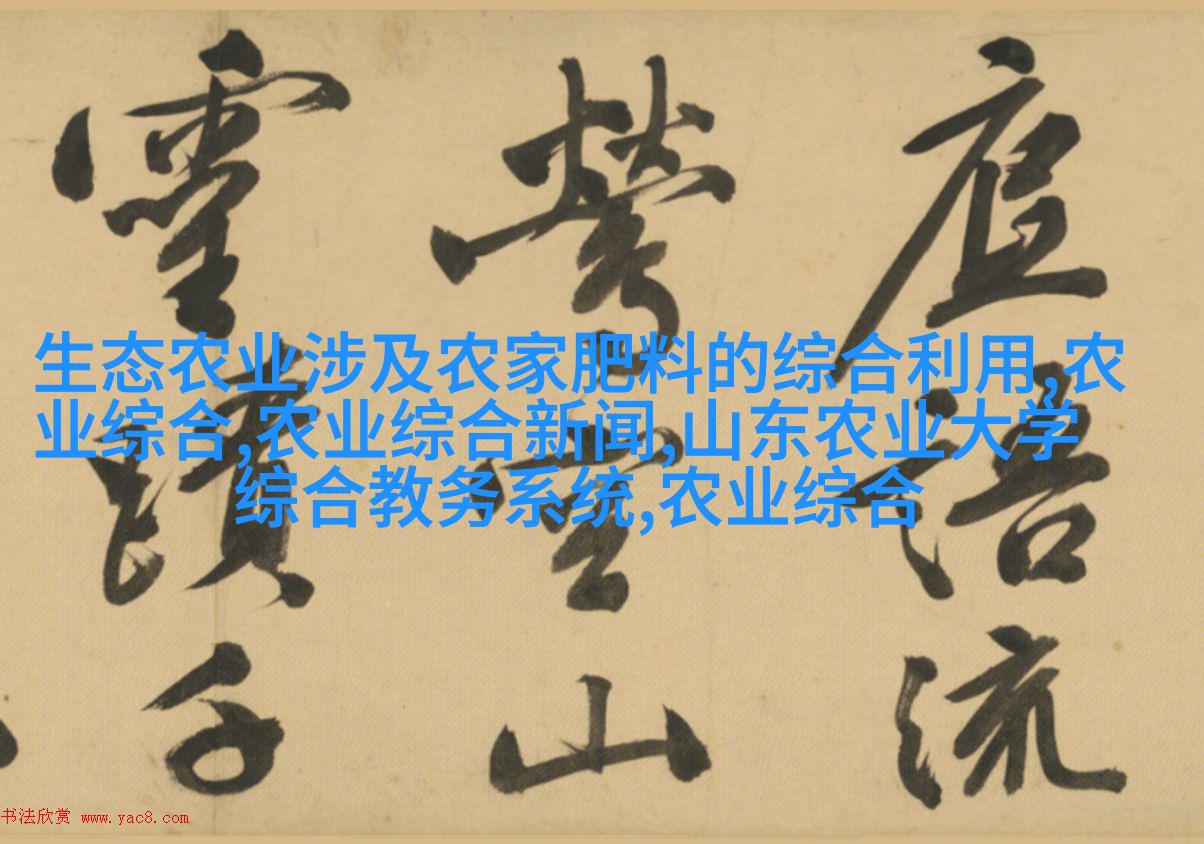 生态农业涉及农家肥料的综合利用,农
业综合,农业综合新闻,山东农业大学
综合教务系统,农业综合
語流
山
靈
书法欣赏 www.yac8.com